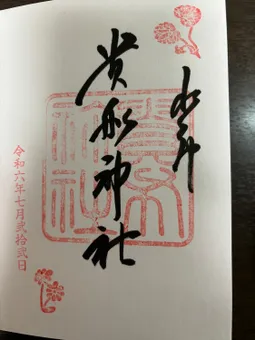 奉拝
貴船神社
令和六年七月弐拾弐日